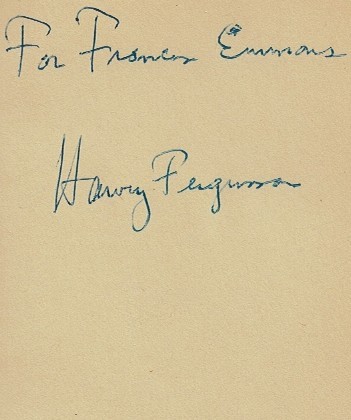 For Frances Emmons
Harvey Fergusson